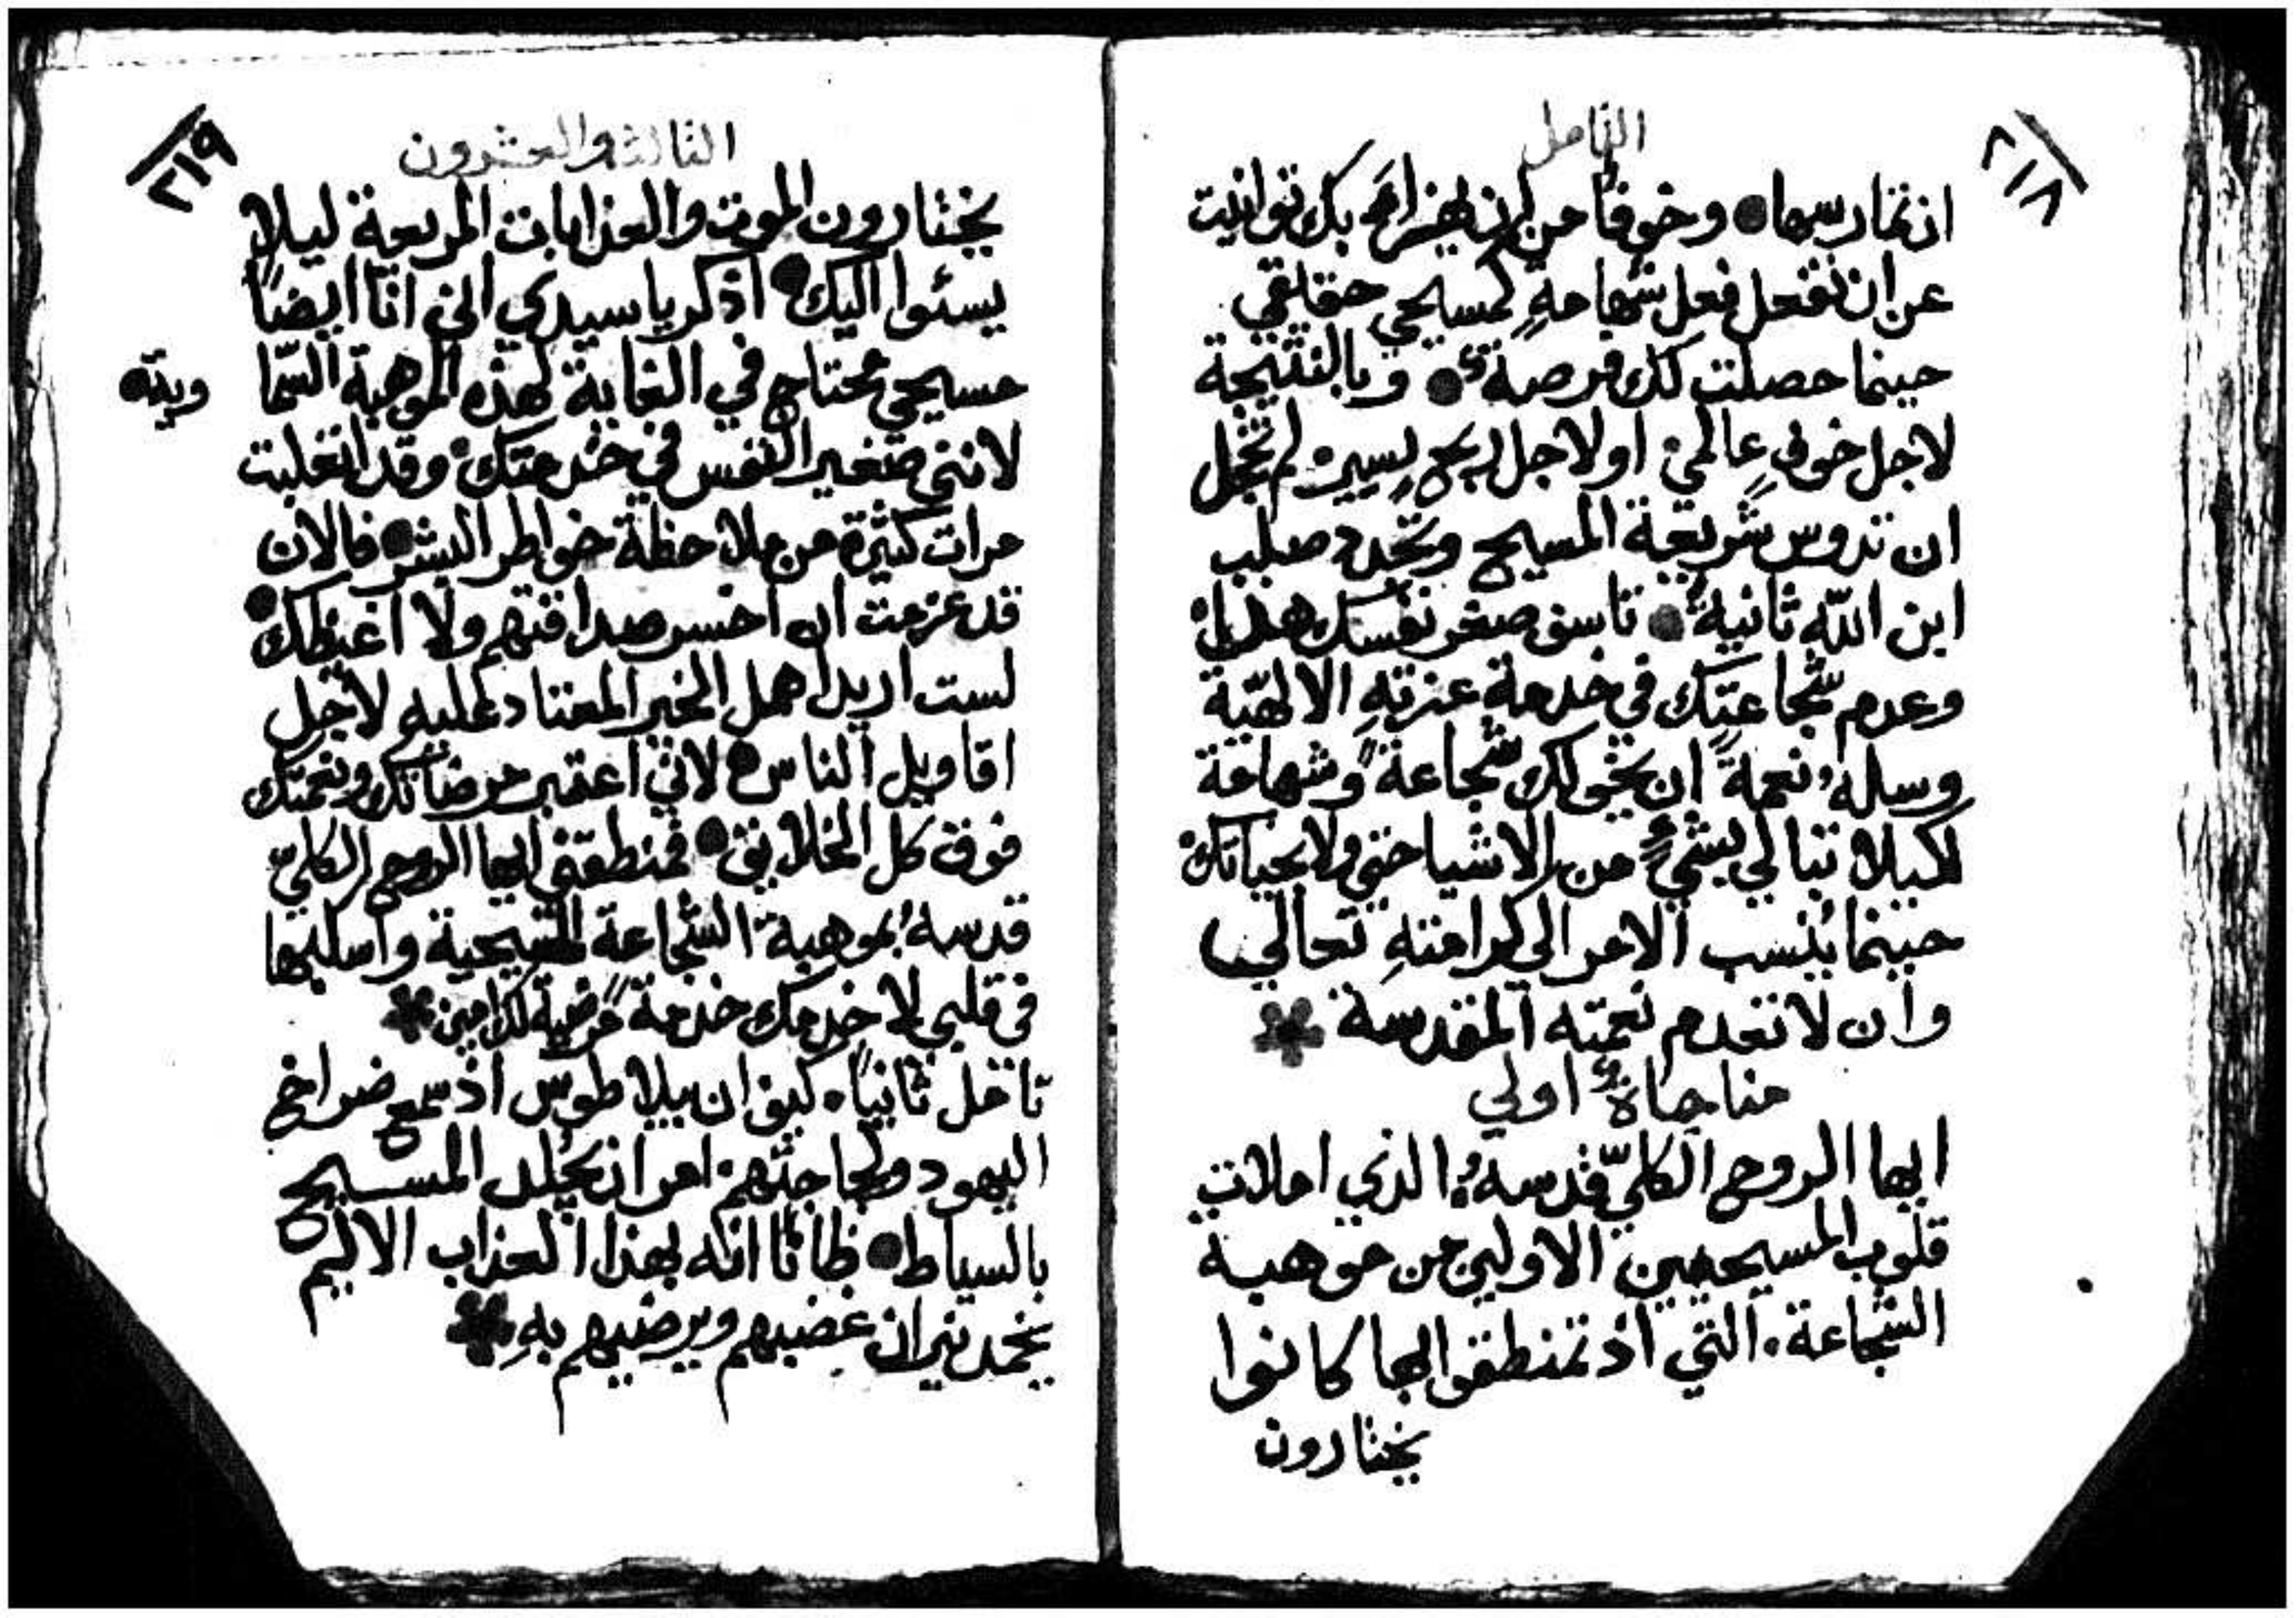 ٢١٨
التامل
ان تمارسها وخوفًا من ان يهزاء بك توانيت
عن ان تفعل فعل شهامةٍ لمسيحي حقاقي
حينما حصلت لك فرصةٌ وبالنتيجة
لاجل خوفٍ عالمي او لاجل ربحٍ يسير لم تخجل
ان تدوس شريعة المسيح وتجدد صلب
ابن اللّه ثانيةً تاسف صغر نفسك هذا
وعدم شجاعتِك في خدمة عزتهِ الالهيّة
وسلهُ نعمةً ان يخولك شجاعةً وشهامة
لكيلا تبالي بشيءٍ من الاشيا حتى ولا بحياتك
حينما يُنسب الامر الى كرامتهِ تعالى
وان لا تعدم نعمته المقدسة
مناجاةٌ اولى
ايها الروح الكليّ قدسهُ الذي املات
قلوب المسيحيين الاولين من موهبة
الشجاعة. التي اذ تمنطقوا بها كانوا
يختارون
٢١٩
الثالثه والعشرون
يختارون الموت والعذابات المريعة ليلا
يسئوا اليك اذكر يا سيدي اني انا ايضًا
مسيحي محتاج في الغاية لهذه الموهبة السّما
ويّة
لانني صغير النفس في خدمتك وقد انغلبت
مرات كثيرة من ملاحظة خواطر البشر فالان
قد عزمت ان اخسر صداقتهم ولا اغيظك
لست اريد اهمل الخير المعتاد عليه لاجل
اقاويل الناس لاني اعتبر مرضاتك ونعمتك
فوق كل الخلايق فمنطقني ايها الروح الكليّ
قدسهُ بموهبة الشجاعة المسيحية واسكبها
في قلبي لاخدمك خدمةً مرضية لك امين
تامل ثانيًا. كيف ان بيلاطوس اذ سمع ضراخ
اليهود ولجاجتهم امر ان يُجلد المسيح
بالسياط ظانًا انه بهذا العذاب الاليم
يخمد نيران غضبهم ويرضيهم بهِ